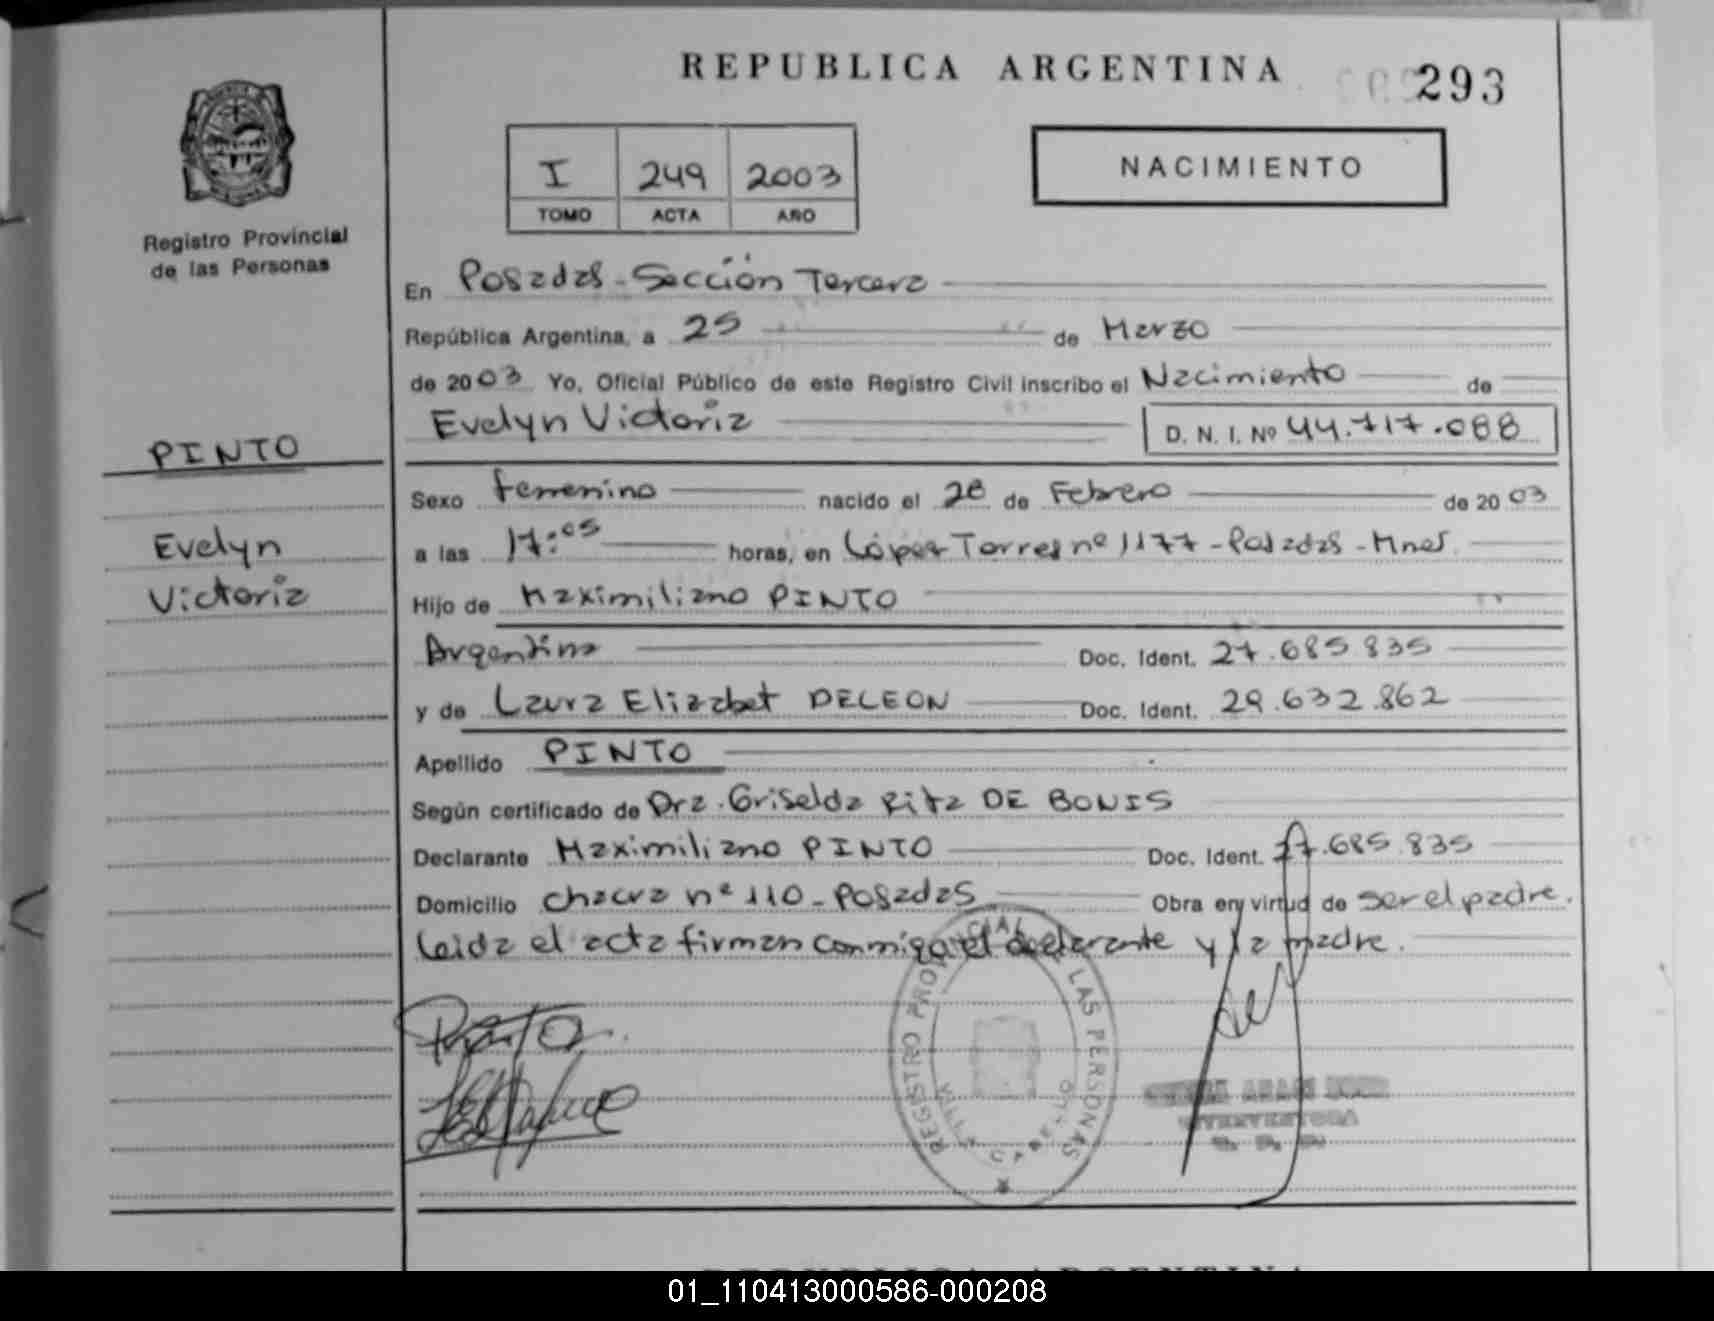 REPUBLICA ARGENTINA
293
I 249 2003
TOMO ACTA AÑO
NACIMIENTO
Registro Provincial
de las Personas
En Posadas - Sección Tercera
República Argentina, a 25 de Marzo
de 2003 Yo, Oficial Público de este Registro Civil inscribo el Nacimiento de
Evelyn Victoria D. N. I. Nº 44.717.088
PINTO
Evelyn
Victoria
Sexo femenino nacido el 28 de Febrero de 2003
a las 17:05 horas, en López Torres nº 1177 - Posadas - Mnes.
Hijo de Maximiliano PINTO
Argentina Doc. Ident. 27.685.835
y de Laura Elizabet DELEON Doc. Ident. 29.632.862
Apellido PINTO
Según certificado de Dra. Griselda Rita DE BONIS
Declarante Maximiliano PINTO Doc. Ident. 27.685.835
Domicilio chacra nº 110 - Posadas Obra en virtud de ser el padre.
Leida el acta firman conmigo el declarante y la madre.
REGISTRO PROVINCIAL DE LAS PERSONAS
01_110413000586-000208